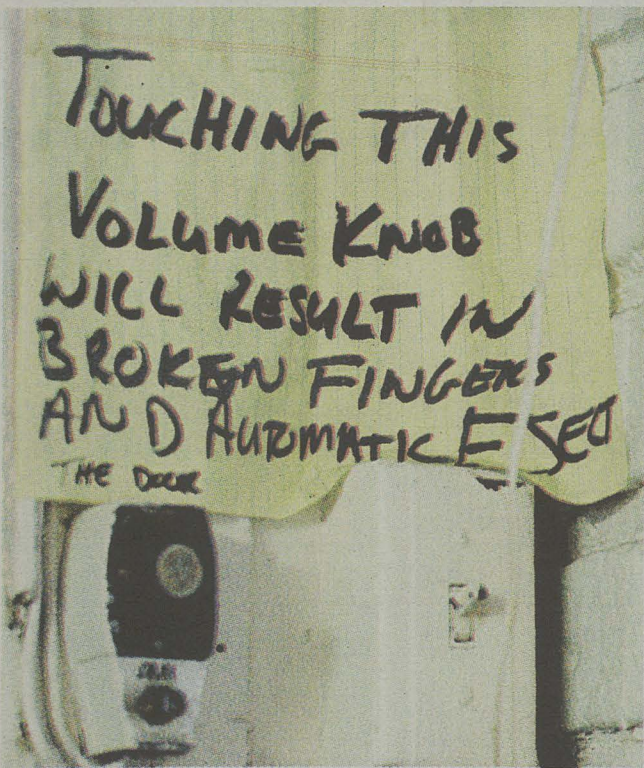 TOUCHING THIS
VOLUME KNOB
WILL RESULT IN
BROKEN FINGERS
AND AUTOMATIC
THE DOOR